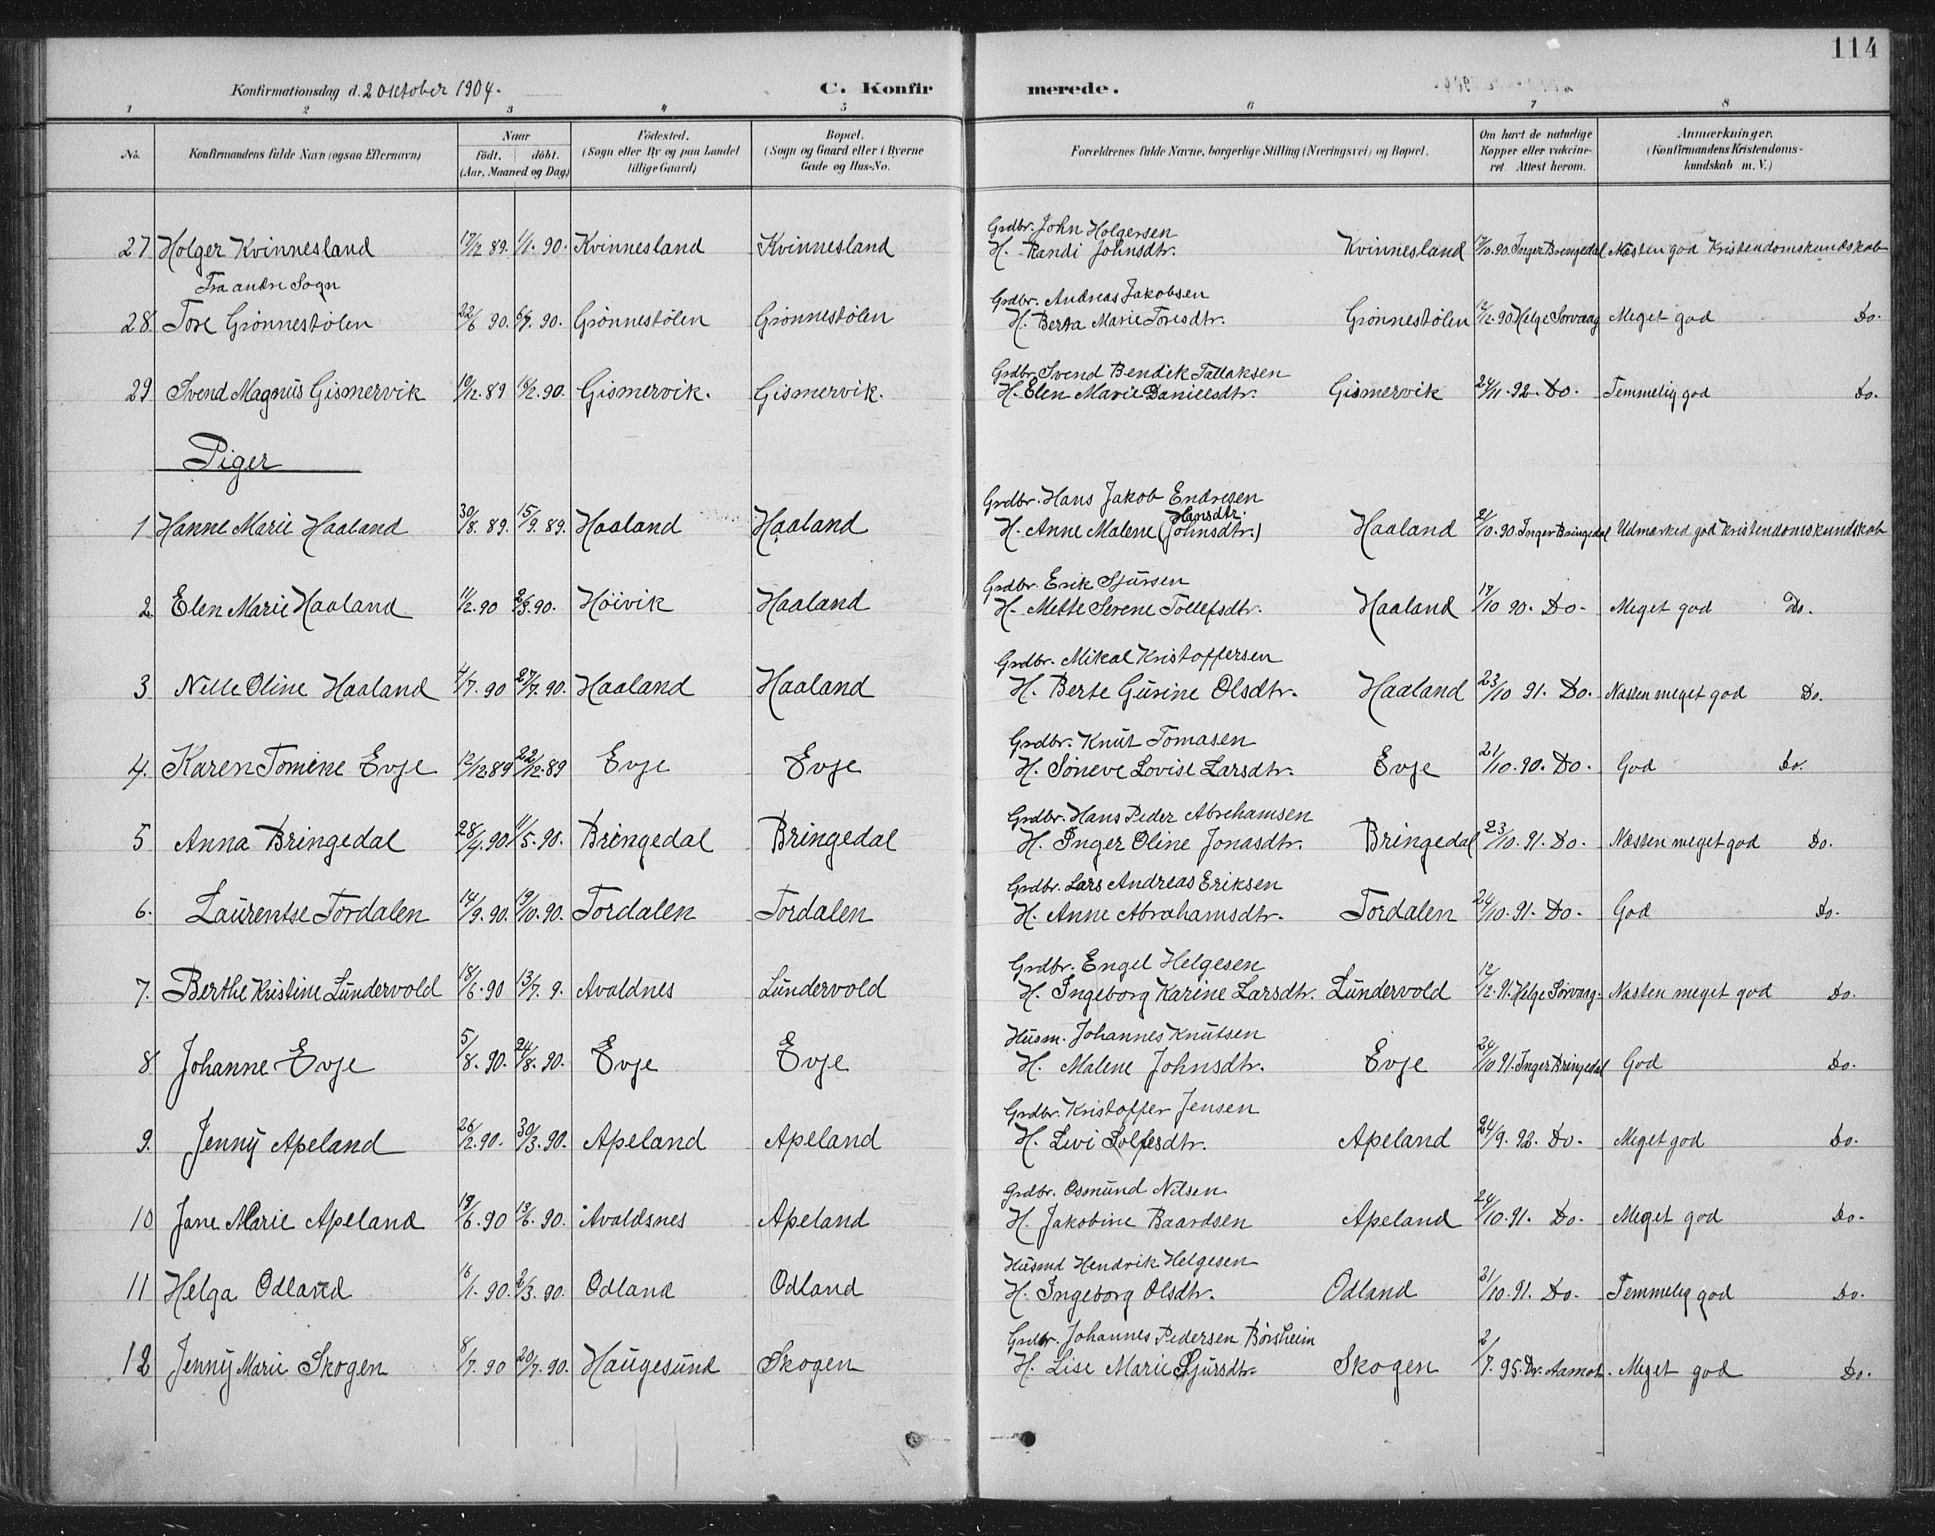 114
Konfirmationsdag d. 2 Oktober 1904.
C. Konfirmerede.
1 2 3 4 5 6 7 8
No. Konfirmandens fulde Navn (ogsaa Efternavn) Naar födt. döbt. (Aar, Maaned og Dag) Födested. (Sogn eller By og paa Landet tillige Gaard) Bopæl. (Sogn og Gaard eller i Byerne Gade og Hus-No. Forældrenes fulde Navne, borgerlige Stilling (Næringsvei) og Bopæl. Om havt de naturlige Kopper eller vakcineret. Attest herom. Anmærkninger. (Konfirmandens Kristendomskundskab m. V.)
Grdbr. John Holgersen
27 Holger Kvinnesland 17/12 89. 1/1. 90. Kvinnesland Kvinnesland H. Randi Johnsdtr. Kvinnesland 17/10. 90. Inger Bringedal Næsten god Kristendomskundskab
Fra andre Sogn
Grdbr. Andreas Jakobsen
28 Tore Grønnestølen 22/6 90. 6/7. 90. Grønnestølen Grønnestølen H. Berta Marie Toresdtr. Grønnestølen 12/12. 90 Helge Sørvaag Meget god Do.
Grdbr. Svend Bendik Tallaksen
29 Svend Magnus Gismervik 19/12. 89 16/2. 90. Gismervik. Gismervik. H. Elen Marie Danielsdtr. Gismervik 24/11. 92. Do. Temmelig god Do.
Piger
Grdbr. Hans Jakob Endresen
Hansdtr.
1 Hanne Marie Haaland 30/8. 89. 15/9. 89. Haaland Haaland H. Anne Malene (Johnsdtr.) Haaland 21/10. 90. Inger Bringedal Udmærked god Kristendomskundskab
Grdbr. Erik Sjursen
2 Elen Marie Haaland 11/2. 90 2/3. 90. Höivik Haaland H. Mette Serene Tollefsdtr. Haaland 17/10 90. Do. Meget god Do.
Grdbr. Mikal Kristoffersen
3 Nelle Oline Haaland 4/7. 90 27/7. 90. Haaland Haaland H. Berte Gurine Olsdtr. Haaland 23/10 91. Do. Næsten meget god Do.
Grdbr. Knut Tomasen
4. Karen Tomine Evje 12/12 89 22/12. 89 Evje Evje H. Søneve Lovise Larsdtr. Evje 21/10. 90. Do. God Do.
Grdbr. Hans Peder Abrahamsen
5 Anna Bringedal 28/4. 90 11/5. 90. Bringedal Bringedal H. Inger Oline Jonasdtr. Bringedal 23/10. 91. Do. Næsten meget god Do.
Grdbr. Lars Andreas Eriksen
6. Laurentse Tordalen 14/9. 90. 19/10. 90. Tordalen Tordalen H. Anne Abrahamsdtr. Tordalen 24/10. 91. Do. God Do.
Grdbr. Engel Helgesen
7. Berthe Kristine Lundervold 18/6. 90 13/7. 9. Avaldnes Lundervold H. Ingeborg Karine Larsdtr. Lundervold 12/12. 91. Helge Sørvaag. Næsten meget god Do.
Husm. Johannes Knutsen
8 Johanne Evje 5/8. 90. 24/8. 90. Evje Evje H. Malene Johnsdtr. Evje 24/10 91. Inger Bringedal God Do.
Grdbr. Kristoffer Jensen
9. Jenny Apeland 26/2. 90. 30/3. 90. Apeland Apeland H. Livi Solfesdtr. Apeland 24/9. 92. Do. Meget god Do.
Grdbr. Osmund Nilsen
10 Jane Marie Apeland 19/6. 90 13/6. 90. Avaldsnes Apeland H. Jakobine Baardsen Apeland 24/10. 91. Do. Meget god Do.
Husmd Hendrik Helgesen
11 Helga Odland 16/1. 90. 2/3. 90. Odland Odland H. Ingeborg Olsdtr. Odland 21/10. 91. Do. Temmelig god Do.
Grdbr. Johannes Pedersen Börsheim
12 Jenny Marie Skogen 8/7. 90 20/7. 90. Haugesund Skogen H. Lise Marie Sjursdtr. Skogen 2/7. 95. Dr. Aamot. Meget god Do.